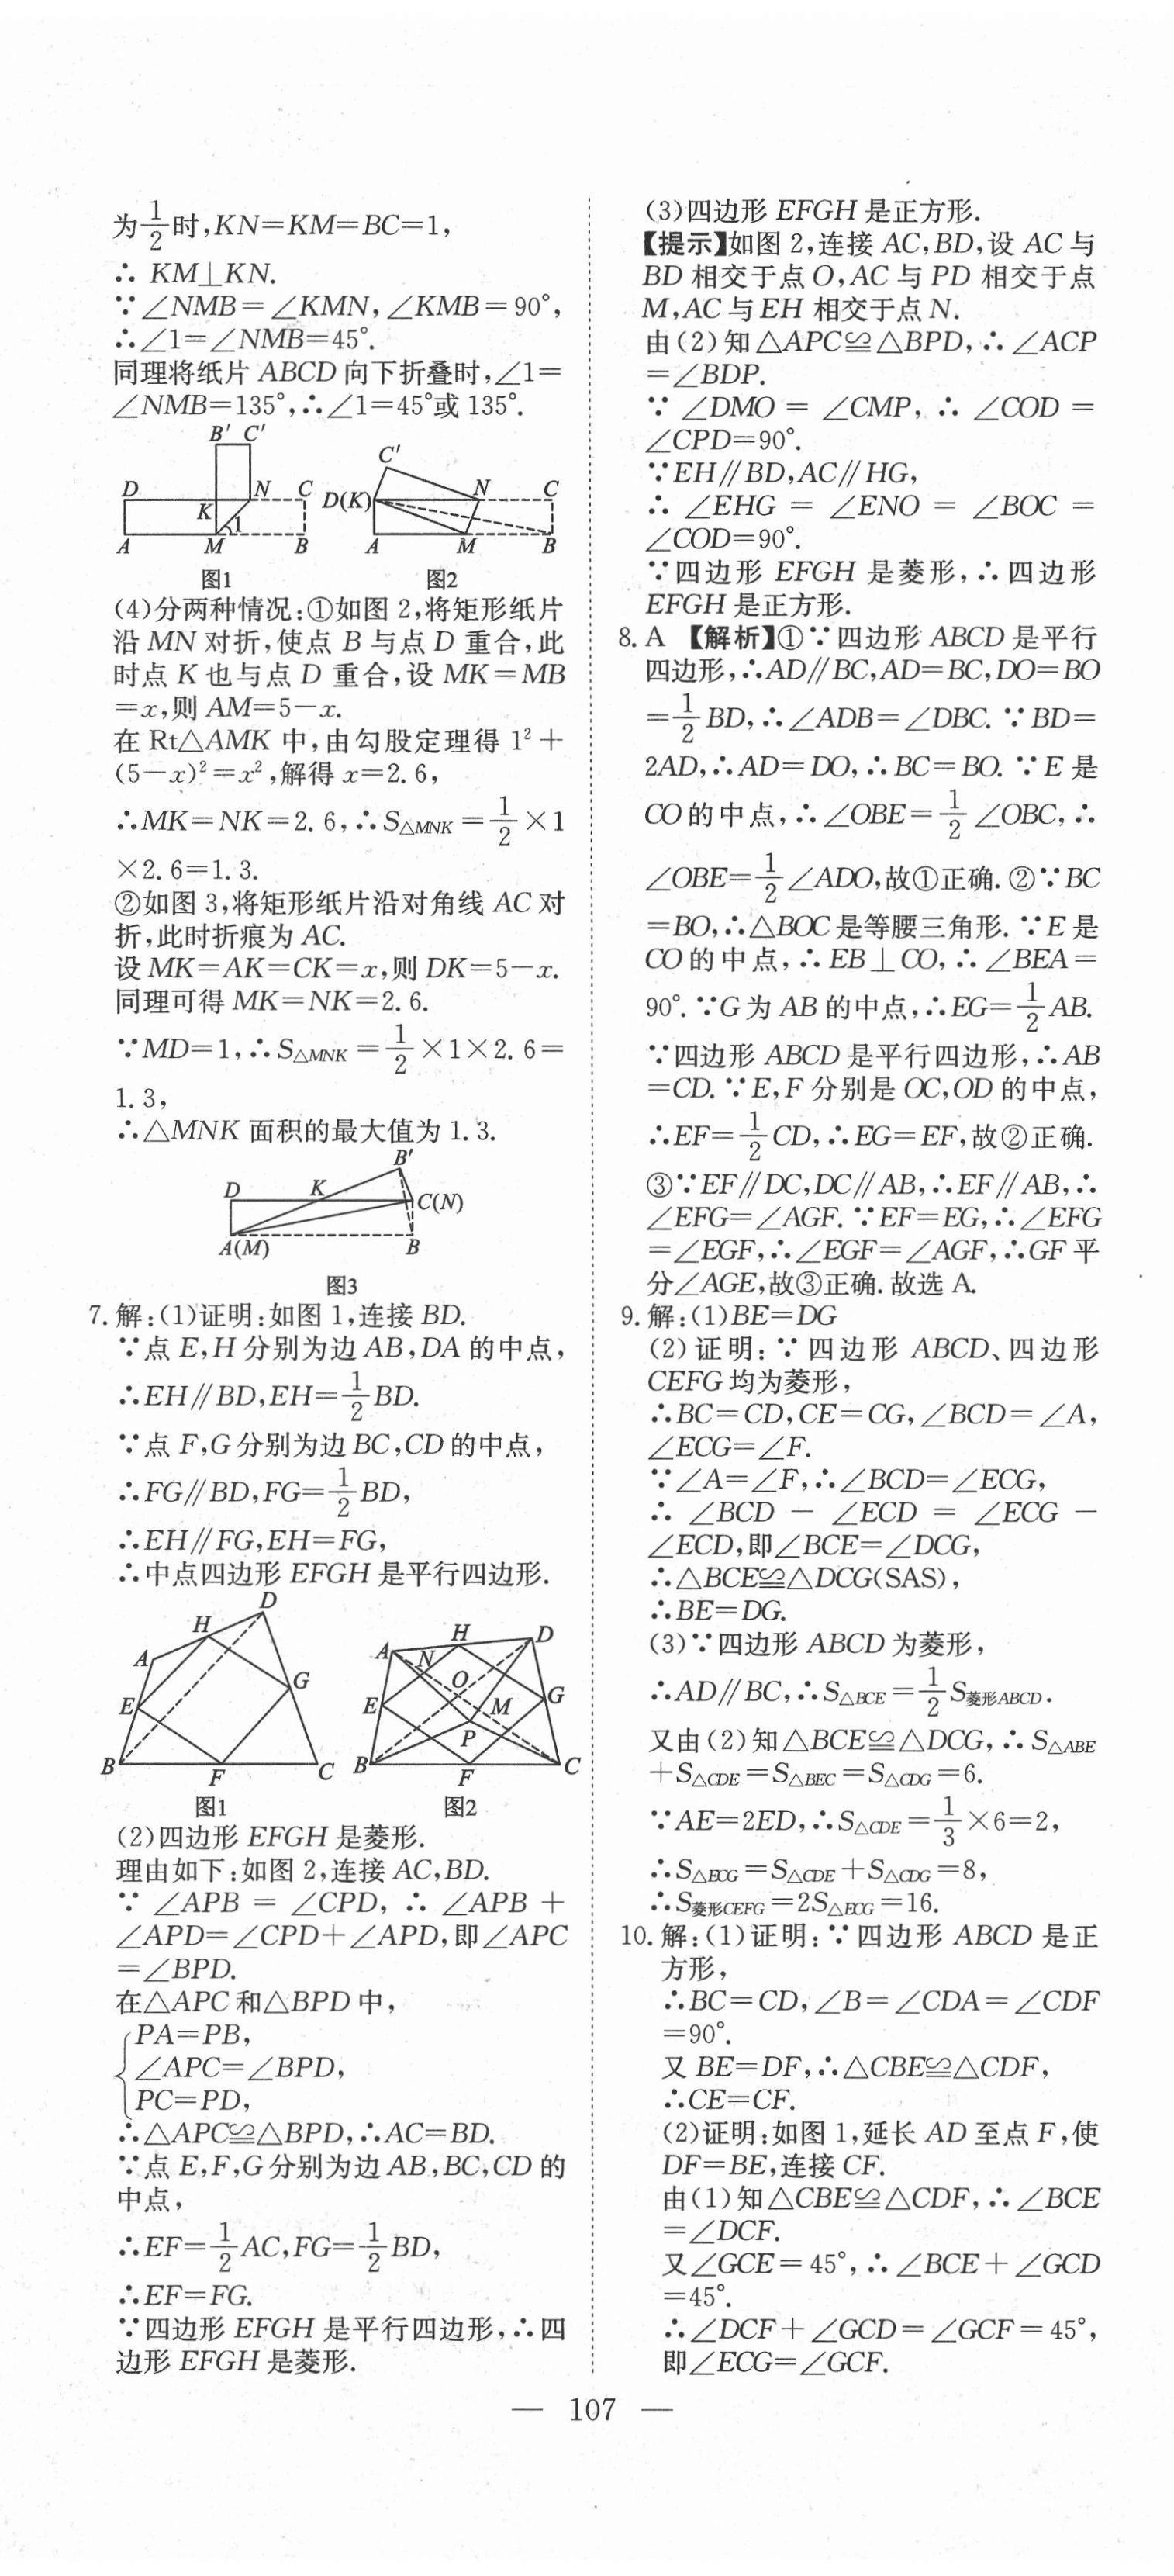 为1/2时,KN=KM=BC=1,
∴ KM⊥KN.
∵∠NMB=∠KMN,∠KMB=90°,
∴∠1=∠NMB=45°.
同理将纸片 ABCD 向下折叠时,∠1=
∠NMB=135°,∴∠1=45°或 135°.
B′ C′
D N C
K
1
A M B
图1
C′
D(K) N C
A M B
图2
(4)分两种情况:①如图 2,将矩形纸片
沿 MN 对折,使点 B 与点 D 重合,此
时点 K 也与点 D 重合,设 MK=MB
=x,则 AM=5-x.
在 Rt△AMK 中,由勾股定理得 1²+
(5-x)²=x²,解得 x=2.6,
∴MK=NK=2.6,∴S△MNK=1/2×1
×2.6=1.3.
②如图 3,将矩形纸片沿对角线 AC 对
折,此时折痕为 AC.
设 MK=AK=CK=x,则 DK=5-x.
同理可得 MK=NK=2.6.
∵MD=1,∴S△MNK=1/2×1×2.6=
1.3,
∴△MNK 面积的最大值为 1.3.
B′
D K C(N)
A(M) B
图3
7.解:(1)证明:如图 1,连接 BD.
∵点 E,H 分别为边 AB,DA 的中点,
∴EH∥BD,EH=1/2BD.
∵点 F,G 分别为边 BC,CD 的中点,
∴FG∥BD,FG=1/2BD,
∴EH∥FG,EH=FG,
∴中点四边形 EFGH 是平行四边形.
D
H
A
G
E
B F C
图1
H D
A N
O
E M G
P
B F C
图2
(2)四边形 EFGH 是菱形.
理由如下:如图 2,连接 AC,BD.
∵ ∠APB = ∠CPD, ∴ ∠APB +
∠APD=∠CPD+∠APD,即∠APC
=∠BPD.
在△APC 和△BPD 中,
PA=PB,
∠APC=∠BPD,
PC=PD,
∴△APC≌△BPD,∴AC=BD.
∵点 E,F,G 分别为边 AB,BC,CD 的
中点,
∴EF=1/2AC,FG=1/2BD,
∴EF=FG.
∵四边形 EFGH 是平行四边形,∴四
边形 EFGH 是菱形.
(3)四边形 EFGH 是正方形.
【提示】如图 2,连接 AC,BD,设 AC 与
BD 相交于点 O,AC 与 PD 相交于点
M,AC 与 EH 相交于点 N.
由(2)知△APC≌△BPD,∴∠ACP
=∠BDP.
∵ ∠DMO = ∠CMP, ∴ ∠COD =
∠CPD=90°.
∵EH∥BD,AC∥HG,
∴ ∠EHG = ∠ENO = ∠BOC =
∠COD=90°.
∵四边形 EFGH 是菱形,∴四边形
EFGH 是正方形.
8.A 【解析】①∵四边形 ABCD 是平行
四边形,∴AD∥BC,AD=BC,DO=BO
=1/2BD,∴∠ADB=∠DBC.∵BD=
2AD,∴AD=DO,∴BC=BO.∵E 是
CO 的中点,∴∠OBE=1/2∠OBC,∴
∠OBE=1/2∠ADO,故①正确.②∵BC
=BO,∴△BOC 是等腰三角形.∵E 是
CO 的中点,∴EB⊥CO,∴∠BEA=
90°.∵G 为 AB 的中点,∴EG=1/2AB.
∵四边形 ABCD 是平行四边形,∴AB
=CD.∵E,F 分别是 OC,OD 的中点,
∴EF=1/2CD,∴EG=EF,故②正确.
③∵EF∥DC,DC∥AB,∴EF∥AB,∴
∠EFG=∠AGF.∵EF=EG,∴∠EFG
=∠EGF,∴∠EGF=∠AGF,∴GF 平
分∠AGE,故③正确.故选 A.
9.解:(1)BE=DG
(2)证明:∵四边形 ABCD、四边形
CEFG 均为菱形,
∴BC=CD,CE=CG,∠BCD=∠A,
∠ECG=∠F.
∵∠A=∠F,∴∠BCD=∠ECG,
∴ ∠BCD - ∠ECD = ∠ECG -
∠ECD,即∠BCE=∠DCG,
∴△BCE≌△DCG(SAS),
∴BE=DG.
(3)∵四边形 ABCD 为菱形,
∴AD∥BC,∴S△BCE=1/2S菱形ABCD.
又由(2)知△BCE≌△DCG,∴S△ABE
+S△CDE=S△BEC=S△CDG=6.
∵AE=2ED,∴S△CDE=1/3×6=2,
∴S△ECG=S△CDE+S△CDG=8,
∴S菱形CEFG=2S△ECG=16.
10.解:(1)证明:∵四边形 ABCD 是正
方形,
∴BC=CD,∠B=∠CDA=∠CDF
=90°.
又 BE=DF,∴△CBE≌△CDF,
∴CE=CF.
(2)证明:如图 1,延长 AD 至点 F,使
DF=BE,连接 CF.
由(1)知△CBE≌△CDF,∴∠BCE
=∠DCF.
又∠GCE=45°,∴∠BCE+∠GCD
=45°.
∴∠DCF+∠GCD=∠GCF=45°,
即∠ECG=∠GCF.
— 107 —